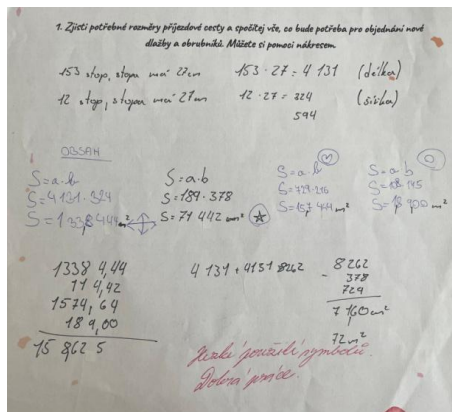 1. Zjisti potřebné rozměry příjezdové cesty a spočítej vše, co bude potřeba pro objednání nové
dlažby a obrubníků. Můžete si pomoci nákresem.
153 stop, stopa má 27cm 153 · 27 = 4 131 (délka)
12 stop, stopa má 27cm 12 · 27 = 324 (šířka)
594
OBSAH
S=a·b
S=4131·324
S=1338444m²
S=a·b
S=189·378
S=71 442 mm²
S=a·b
S=729·216
S=157 464m²
S=a·b
S= 145
S= 900m²
13384,44
114,42
1574,64
189,00
15 862 5
4 131+4131 8262
8262
- 378
729
7 160m²
72m²
Hezké použití symbolů.
Dobrá práce.